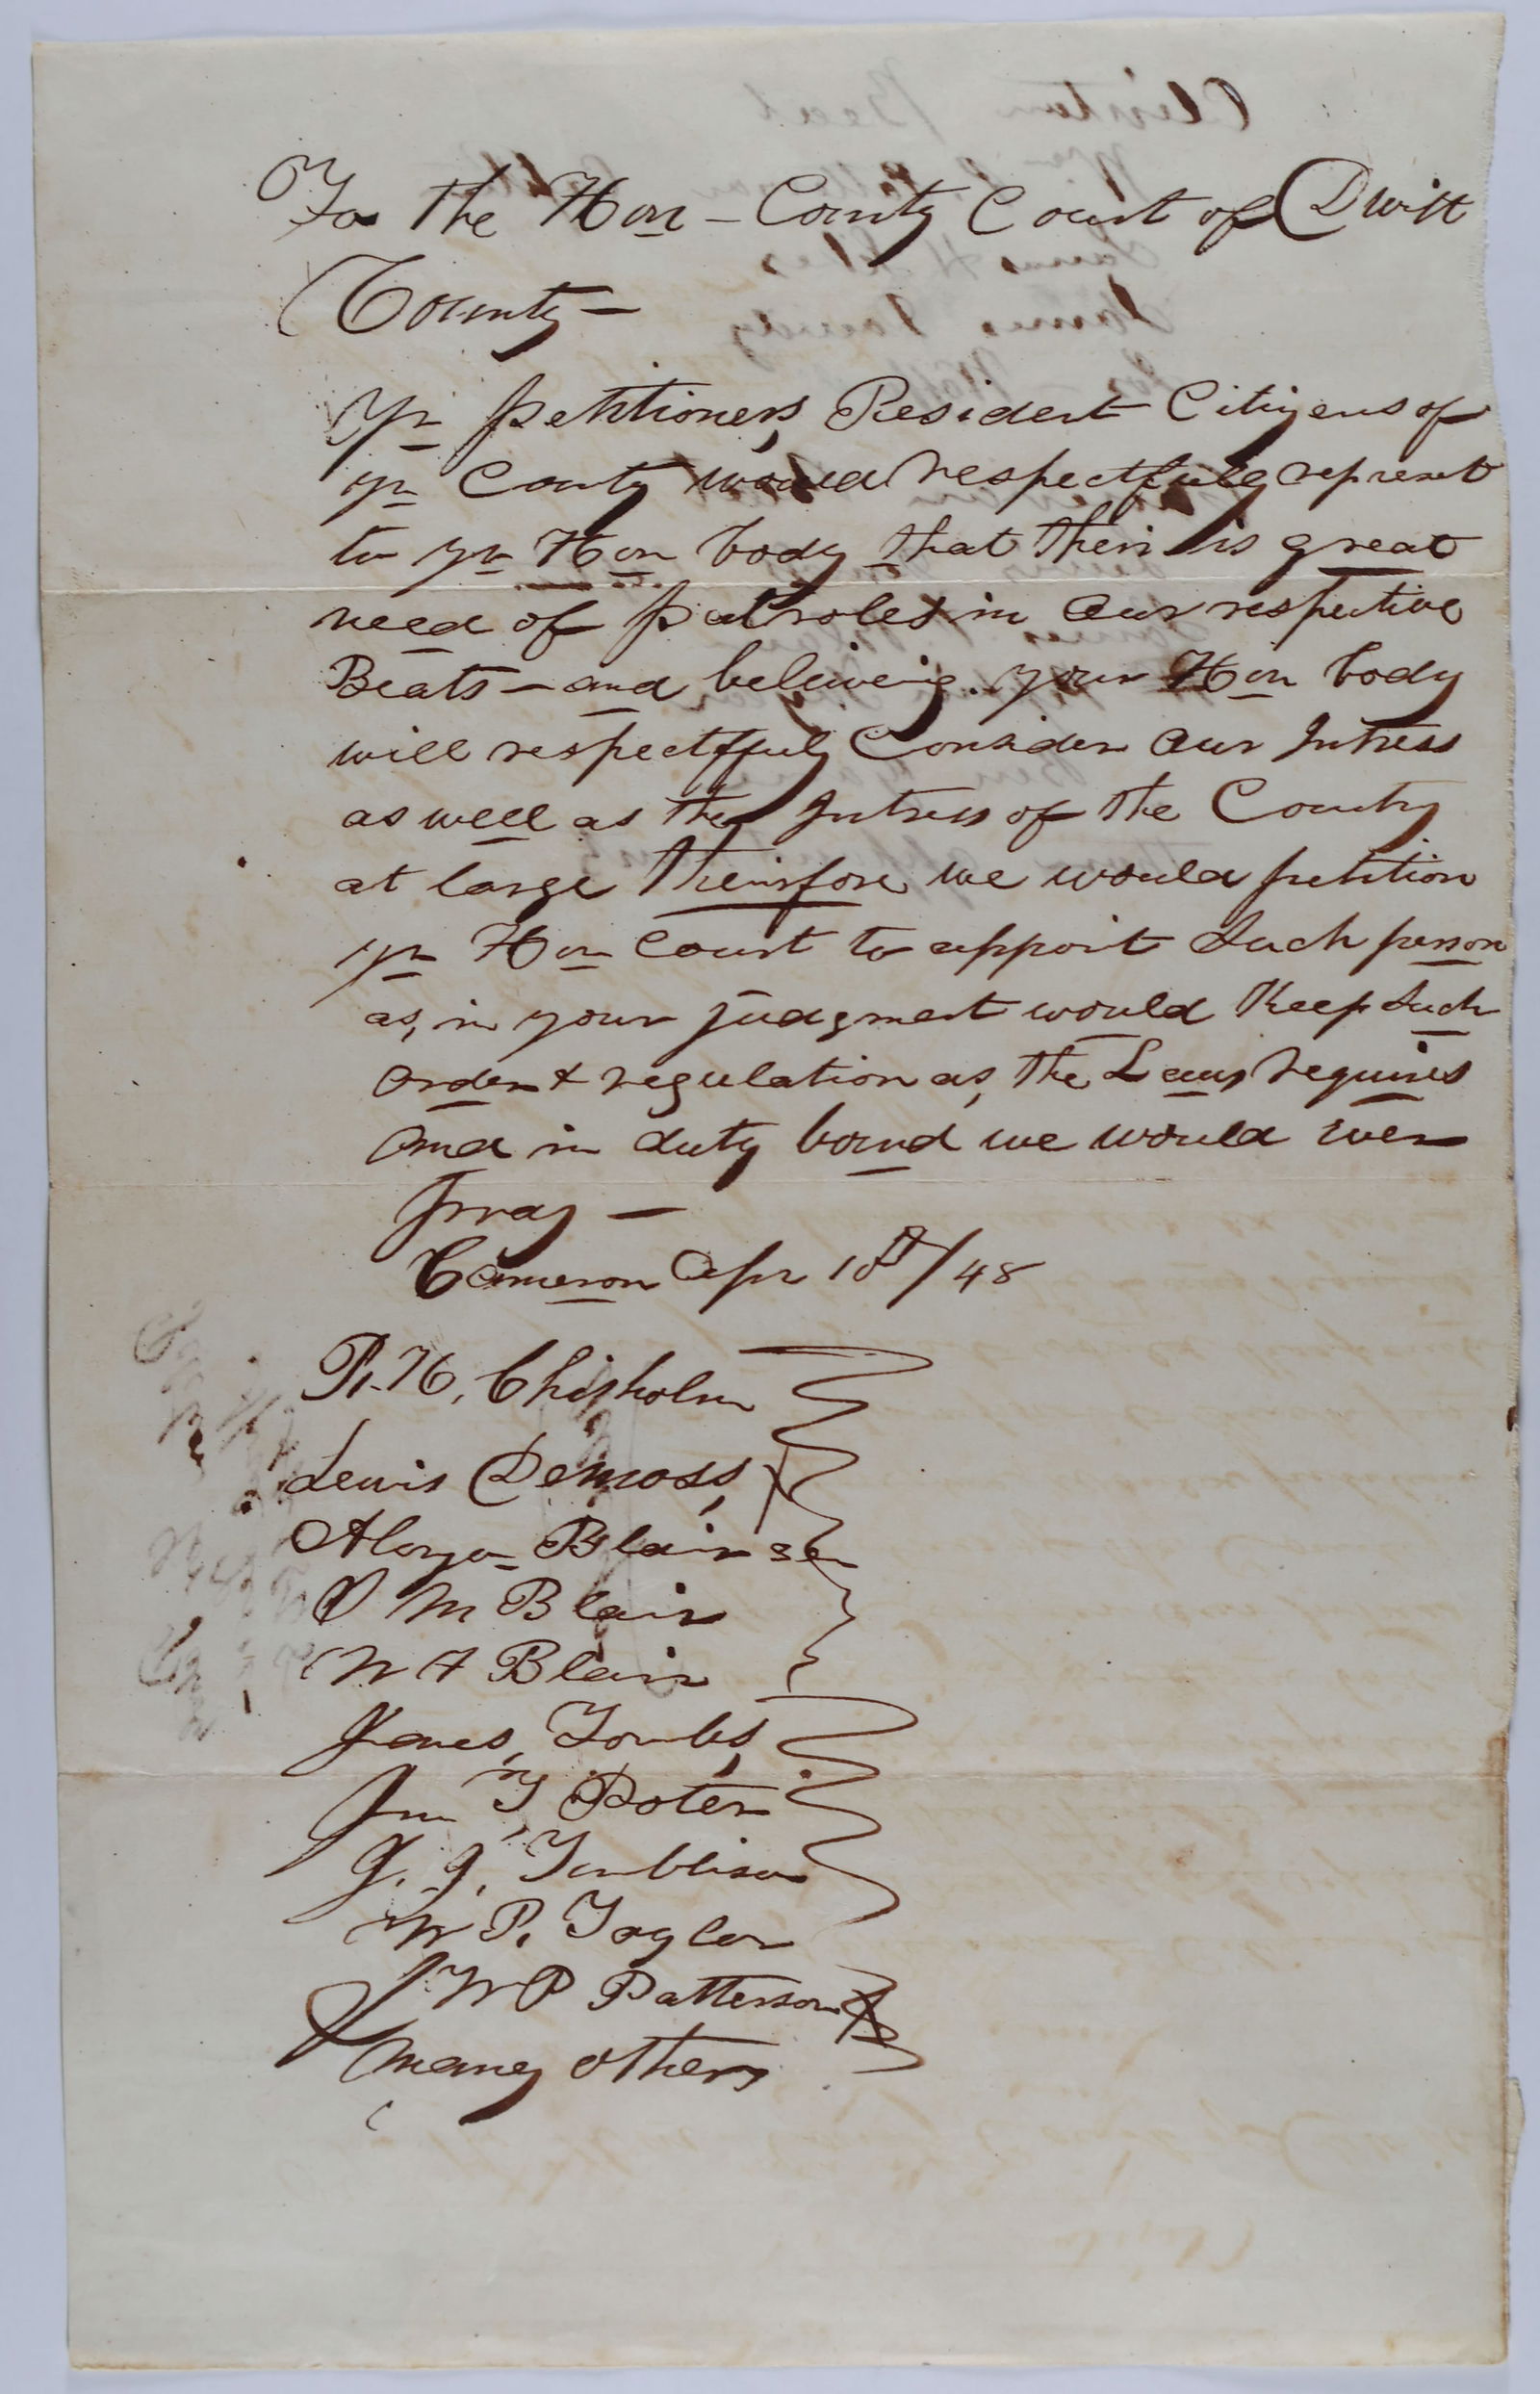 To the Hon - County Court of Dwitt
County -
Yr petitioners, Resident Citizens of
yr County would respectfully represent
to yr Hon body that their is great
need of patroles in our respective
Beats - and beliveing your Hon body
will respectffuly Consider our Intress
as well as the Intress of the County
at large Theirsfore we would petition
yr Hon Court to appoint Such person
as, in your judgment would Keep Such
order & regulation as, the Laws requires
and in duty bound we would ever
pray -
Cameron Apr 10th/48
R. H. Chisholm
Lewis Demoss,
Alonzo Blair sen
V M Blair
W A Blair
James, Tombs,
Jno Y Porter
J. J. Tumblison
W P. Taylor
W P Patterson
& many others
Clinton Beat